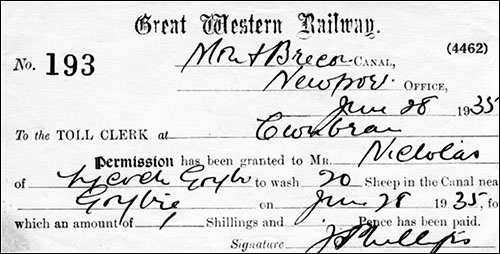 Great Western Railway.
(4462)
No. 193 Mon & Brecon CANAL,
Newport OFFICE,
June 28 1935
To the TOLL CLERK at Cwmbran
Permission has been granted to MR. Nicholas
of to wash 20 Sheep in the Canal near
on June 28 1935, fo
which an amount of 1 Shillings and Pence has been paid.
Signature J Phillips